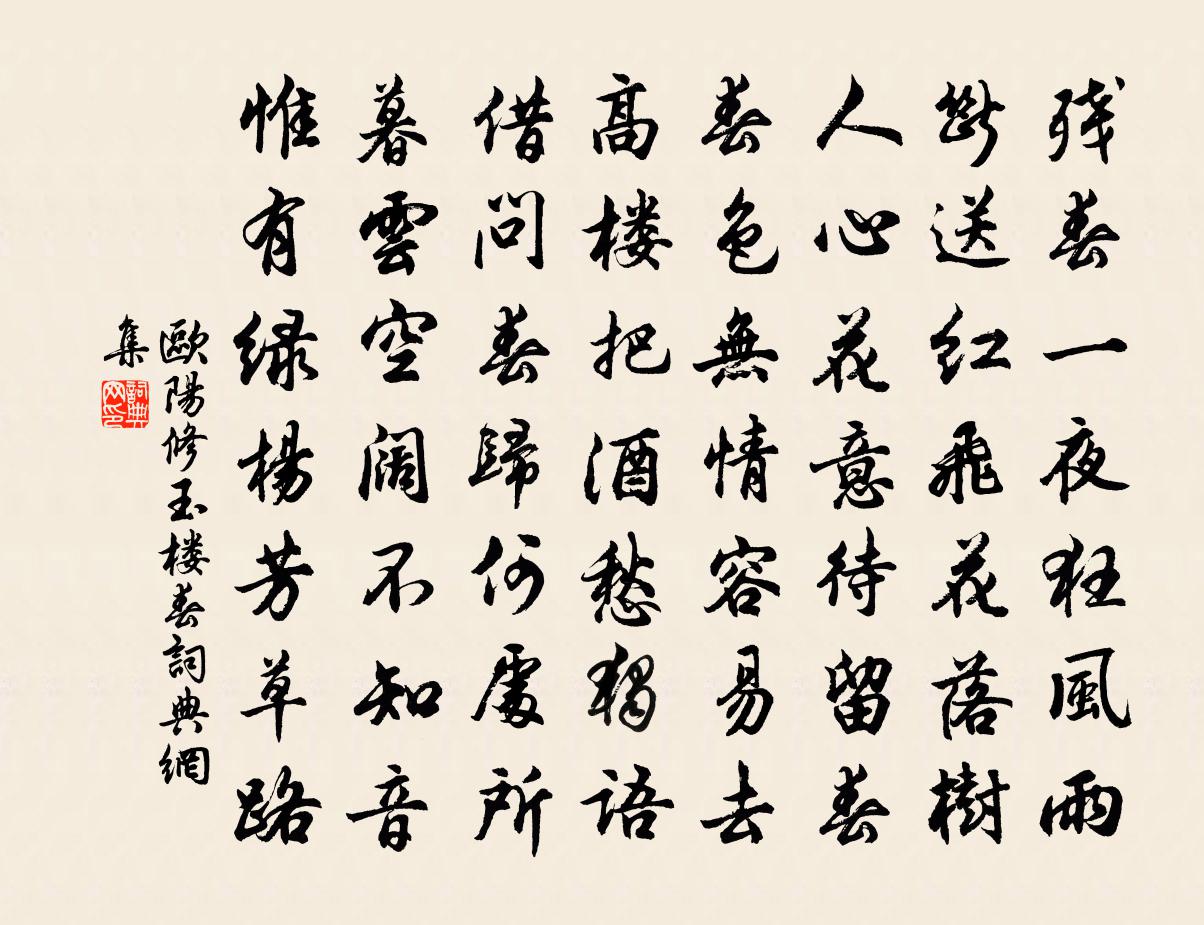 残春一夜狂風雨
斷送紅飛花落樹
人心花意待留春
春色無情容易去
高楼把酒愁獨語
借問春歸何處所
暮雲空闊不知音
惟有绿楊芳草路
歐陽修玉楼春詞典網
集
詞典网印